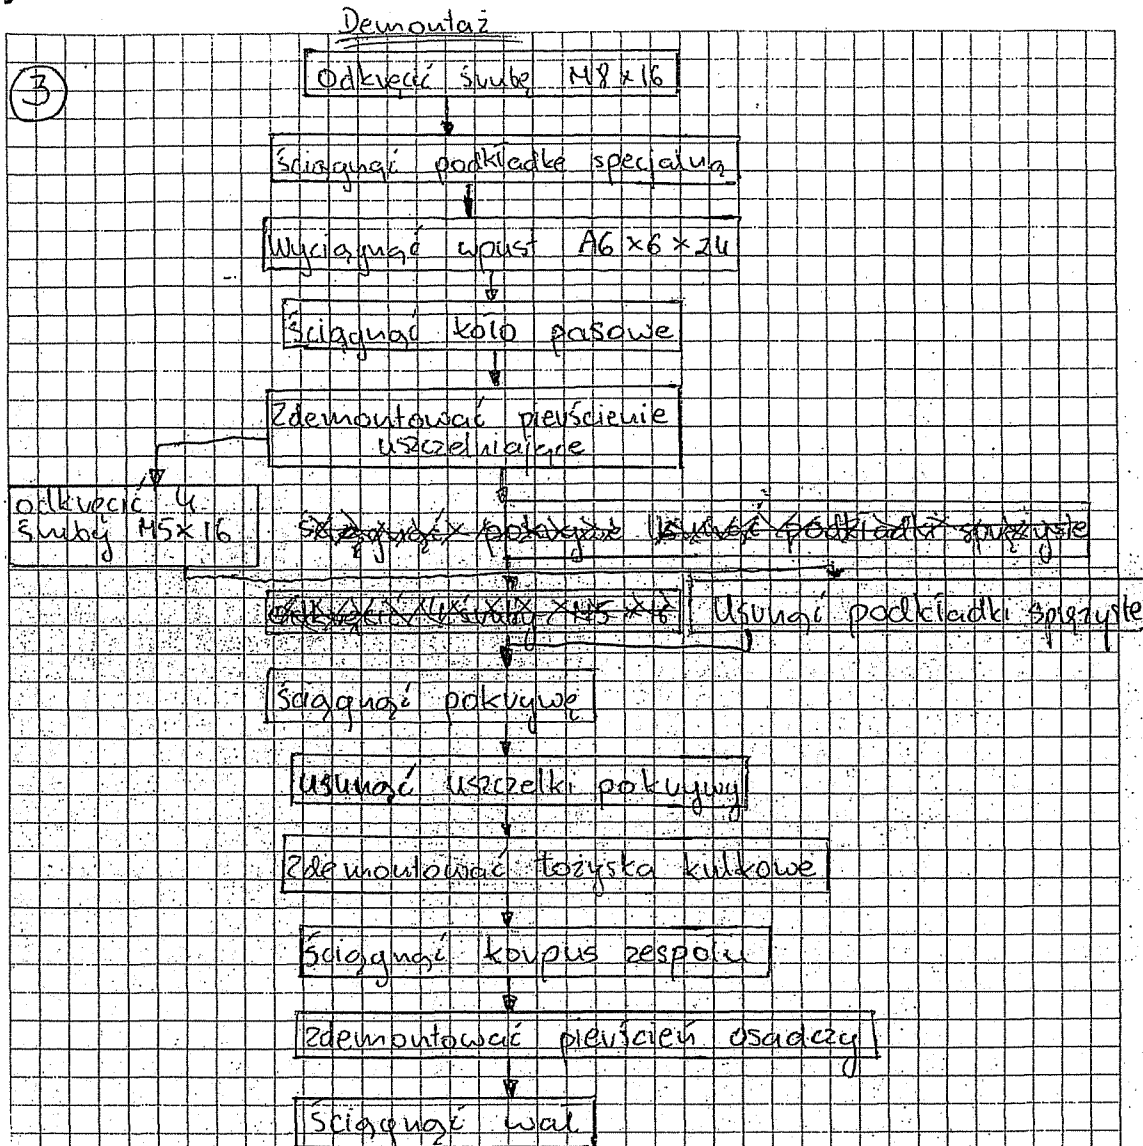 Demontaż
3
Odkręcić śrubę M8 x 16
ściągnąć podkładkę specjalną
Wyciągnąć wpust A6 x 6 x 24
Ściągnąć koło pasowe
Zdemontować pierścienie
uszczelniające
odkręcić 4
śruby M5 x 16
ściągnąć pokrywę usunąć podkładki sprężyste
odkręcić 4 śruby M5 x 16 Usunąć podkładki sprężyste
ściągnąć pokrywę
usunąć uszczelki pokrywy
Zdemontować łożyska kulkowe
Ściągnąć korpus zespołu
zdemontować pierścień osadczy
ściągnąć wał